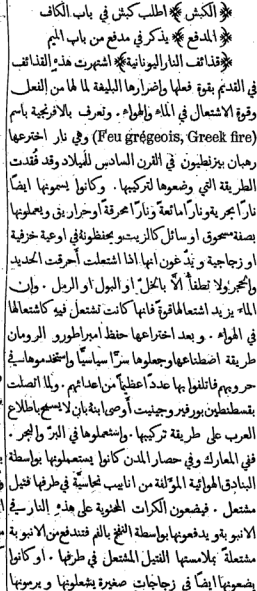 ﴿الكبش﴾ اطلب كبش في باب الكاف
﴿المدفع﴾ يذكر في مدفع من باب الميم
﴿قذائف النار اليونانية﴾ اشتهرت هذه القذائف
في القديم بقوة فعلها وإضرارها البليغة لما لها من الفعل
وقوة الاشتعال في الماء والهواء. وتعرف بالافرنجية باسم
(Feu grégeois, Greek fire) وهي نار اخترعها
رهبان بيزنطيون في القرن السادس للميلاد وقد فقدت
الطريقة التي وضعوها لتركيبها. وكانوا يسمونها ايضاً
ناراً بحرية وناراً مائعة وناراً محرقة او حراريق ويعملونها
بصفة مسحوق او سائل كالزيت ويحفظونه في اوعية خزفية
او زجاجية ويدّعون انها اذا اشتعلت أحرقت الحديد
والحجر ولا تطفأ الّا بالخل او البول او الرمل. وان
الماء يزيد اشتعالها قوة فانها كانت تشتعل فيه كاشتعالها
في الهواء. وبعد اختراعها حفظ امبراطورو الرومان
طريقة اصطناعها وجعلوها سرّاً سياسيّاً واستخدموها في
حروبهم فاتلفوا بها عدداً عظيماً من اعدائهم. ولما اتصلت
بقسطنطين بورفيروجينيت أوصى ابنه بان لا يسمح باطلاع
العرب على طريقة تركيبها. واستعملوها في البرّ والبحر.
ففي المعارك وفي حصار المدن كانوا يستعملونها بواسطة
البنادق الهوائية المؤلفة من انابيب نحاسيّة في طرفها فتيل
مشتعل. فيضعون الكرات المحتوية على هذه النار في
الانبوبة ويدفعونها بواسطة النفخ بالفم فتندفع من الانبوبة
مشتعلة بملامستها الفتيل المشتعل في طرفها. او كانوا
يضعونها ايضاً في زجاجات صغيرة يشعلونها ويرمونها